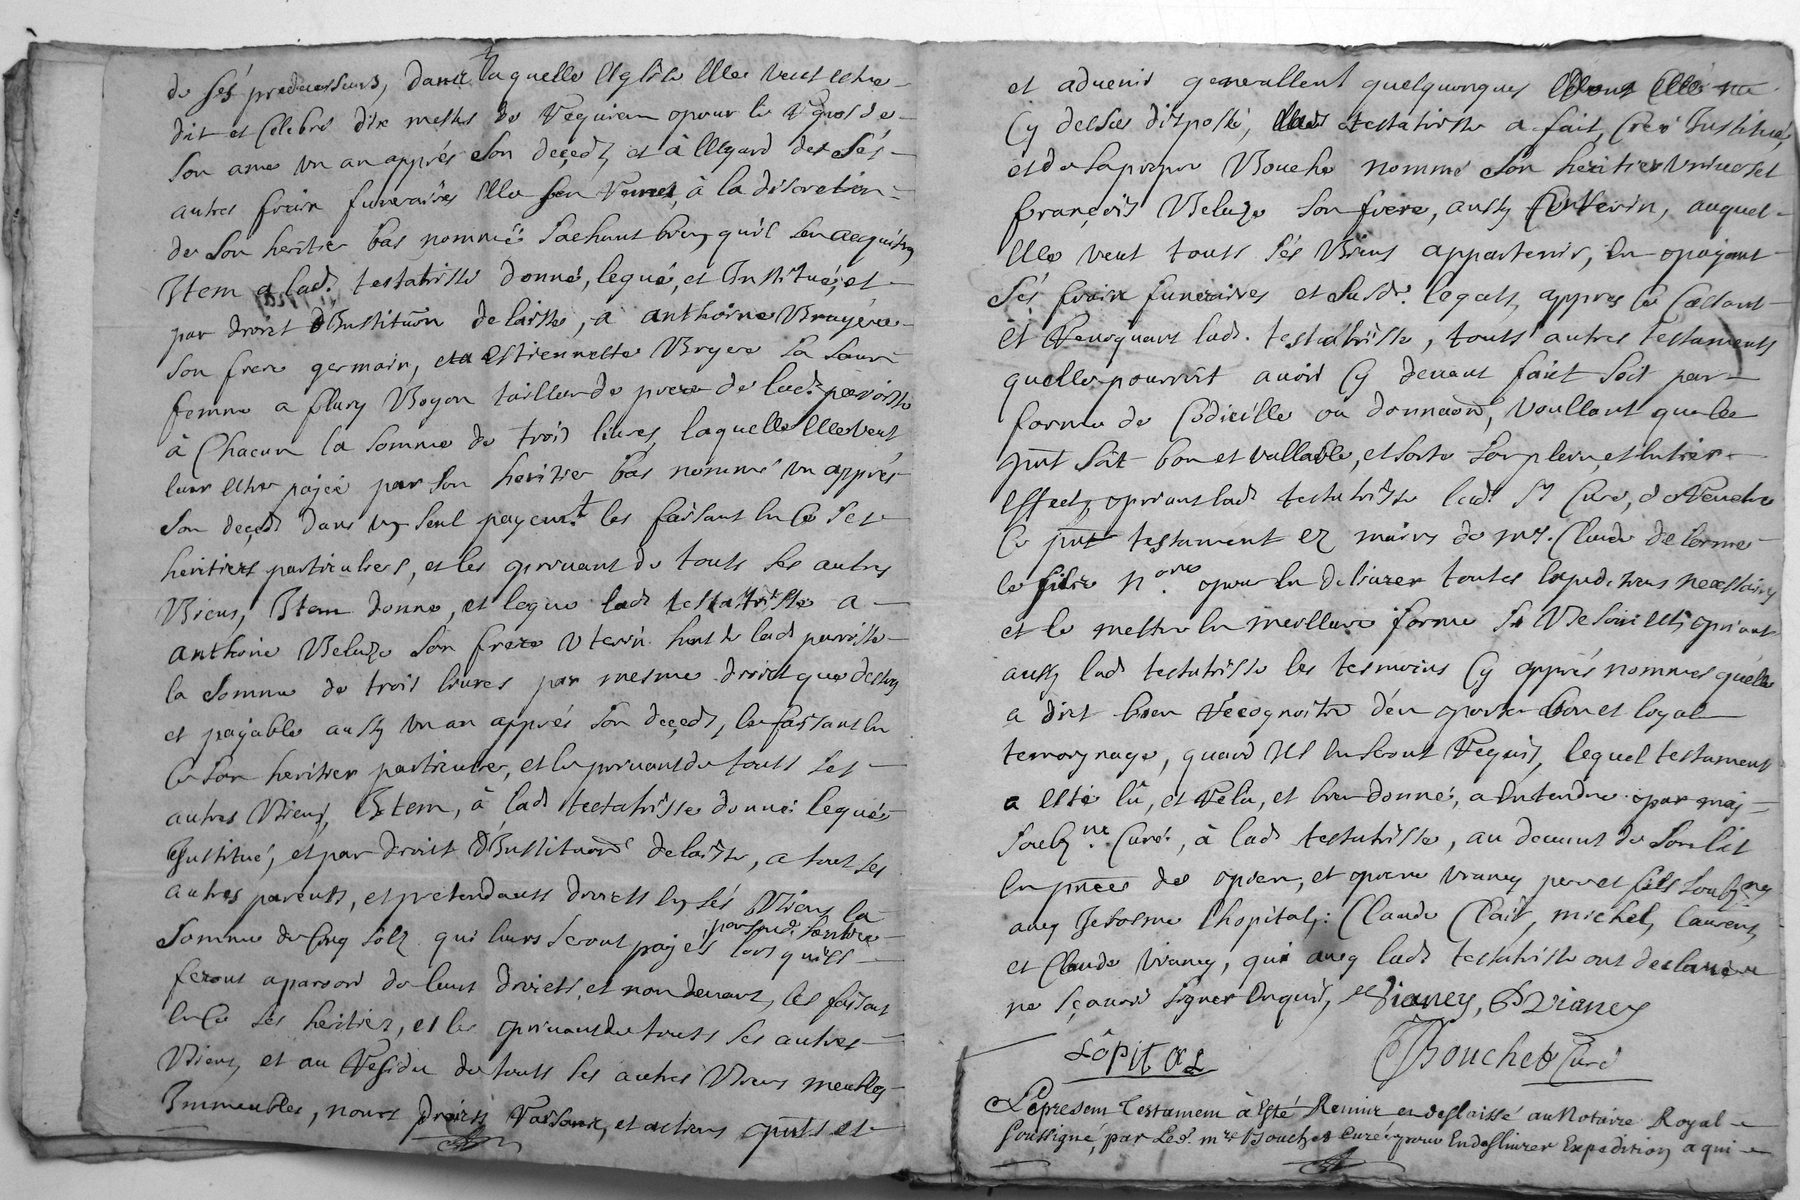 de sés predecesseurs, dans laquelle Eglise elle veut estre
dit et celebré dix messes de requiem pour le repos de
son ame un an apprés son deçedz et à l'esgard des sés
autres fraix funeraires elle s'en remet, à la discretion
de son heritier bas nommé sachant bien qu'il s'en acquitera
Item a lad. testatrisse donné, legué, et Institué, et
par droict d'Institution delaissé, a anthoine Bruyere
son frere germain, et a Estiennette Bryere sa sœur
femme a Flury Boyon tailleur de pierre de lad. parroisse
à Chacun la somme de trois livres, laquelle elle veut
leur estre pajeé par son heritier bas nommé un apprés
son deçedz dans un seul payemt. les faisant en ce ses
heritiers particuliers, et les privant de touts ses autres
Biens, Item donne, et legue lad. testatrisse a
anthoine Veluze son frere uterin de lad. parroisse
la somme de trois livres par mesme droict que dessus
et payable aussy un an apprés son deçedz, le faisant en
ce son heritier particulier, et le privant de touts ses
autres Biens, Item, à lad. testatrisse donné legué
Institué, et par droict d'Institution delaissé, a tout ses
autres parents, et pretendants droicts en sés Biens la
somme de Cinq solz qui leurs seront pajés par sond. heritier lors quils
feront aparoir de leurs droicts, et non devant, les faisant
en ce ses heritiers, et les privant de touts ses autres
Biens, et au Residu de touts ses autres Biens meubles
Immeubles, noms droicts raisons, et actions pnts et
et advenir generallement quelquonques dont elle na
Cy dessus disposé, lad. testatrisse a fait, Creé Institué,
et de sa propre Bouche nommé son heritier universel
françois Veluze son frere, aussy uterin, auquel
elle veut touts sés Biens appartenir, en payant
sés fraix funeraires et susd. legats, appres ce Cassant
et revoquant lad. testatrisse, touts autres testaments
quelle pourroit avoir Cy devant faict soit par
forme de Codicille ou donnaon, voullant que le
pnt soit bon et vallable, et sorte son plein, et entier
effect, priant lad. testatrisse led. Sr Curé, de remettre
ce pnt testament ez mains de mr. Claude delorme
le filz nore. pour en delivrer toutes expeditions necessaires
et le mettre en meilleure forme si Besoin est, priant
aussy lad. testatrisse les tesmoins Cy apprés nommés quelle
a dict bien récognoitre d'en porter bon et loyal
temoignage, quand ils en seront requis, lequel testament
a esté lû, et relu, et bien donné, a entendre par moj
soubzne. Curé, à lad. testatrisse, au devant de son lit
en pnces de pierre, et pierre vianey pere et fils soubznes
avec Jerosme lhopital, Claude Clair, michel, Laurens,
et Claude vianey, qui avec lad. testatrisse ont declaré
ne sçavoir signer Enquis, Vianey, P Vianey
Lôpital Bouchet Curé
Le present testament à Esté Remis en deslaissé au Notaire Royal
soussigné, par Led. mre Bouchet curé pour En deslivrer Expedition a qui